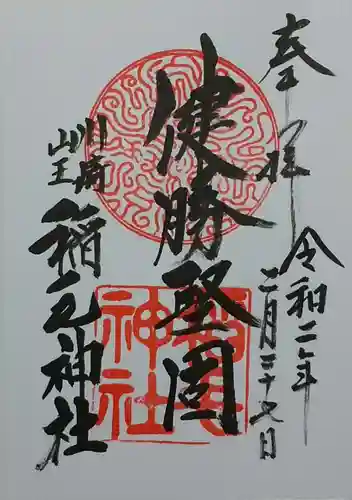 奉拝
令和二年
二月二十七日
健勝堅固
川崎
山王
稲毛神社
稲毛
神社